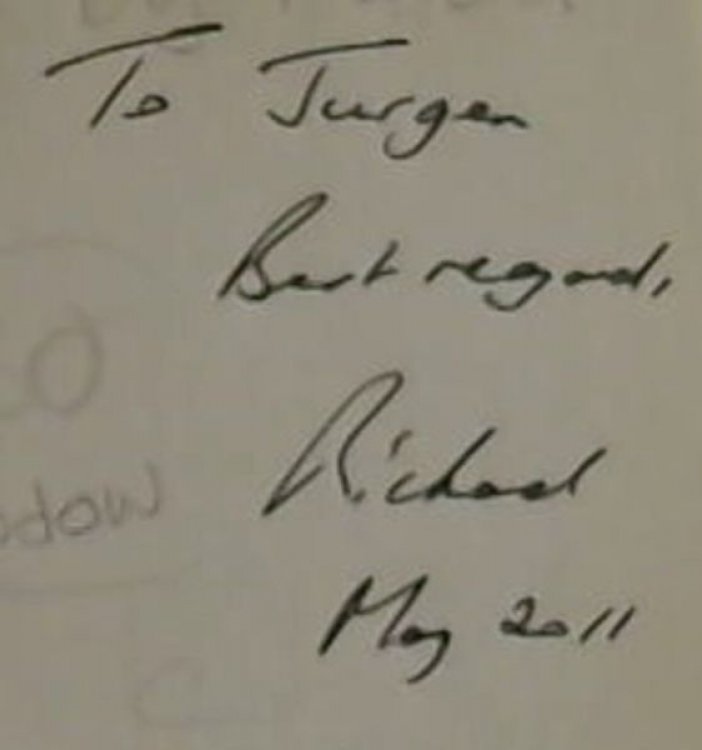 To Jurgen
Best regards,
Richard
May 2011